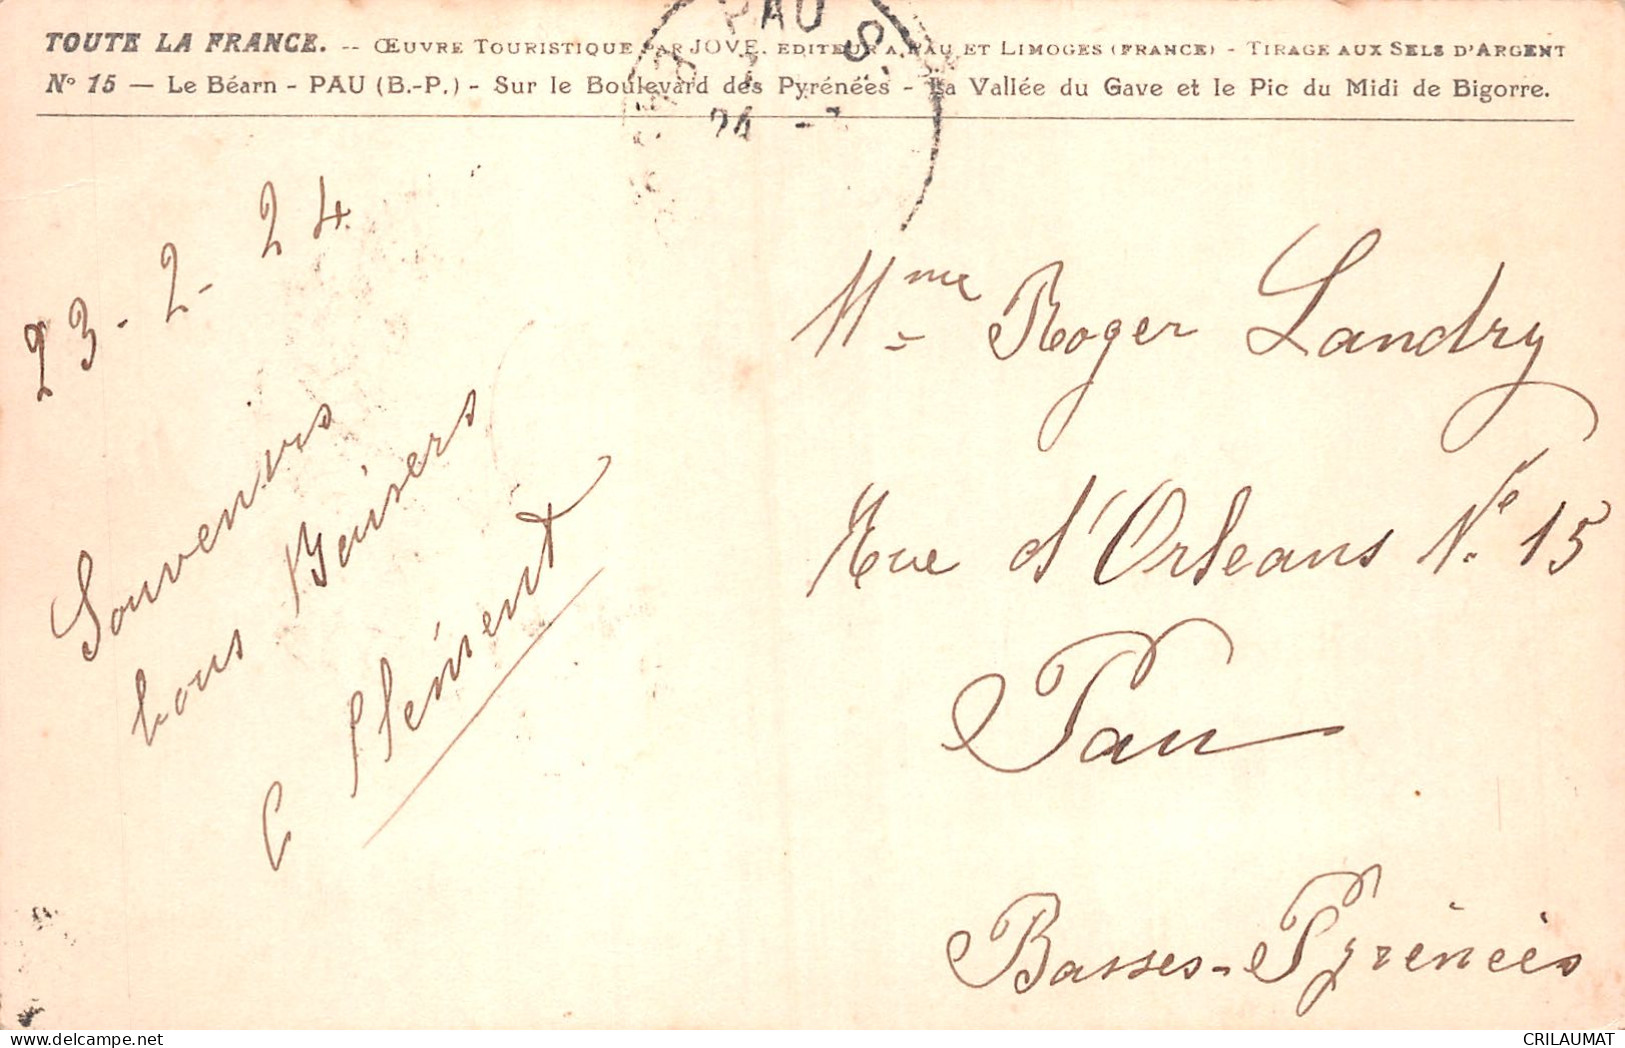 TOUTE LA FRANCE. -- ŒUVRE TOURISTIQUE PAR JOVE. EDITEUR A PAU ET LIMOGES (FRANCE) - TIRAGE AUX SELS D'ARGENT
N° 15 — Le Béarn - PAU (B.-P.) - Sur le Boulevard des Pyrénées - La Vallée du Gave et le Pic du Midi de Bigorre.
PAU
24
23-2-24
Souvenirs
bons Baisers
C Clément
Mme Roger Landry
Rue d'Orleans N° 15
Pau
Basses-Pyrénées
CRILAUMAT